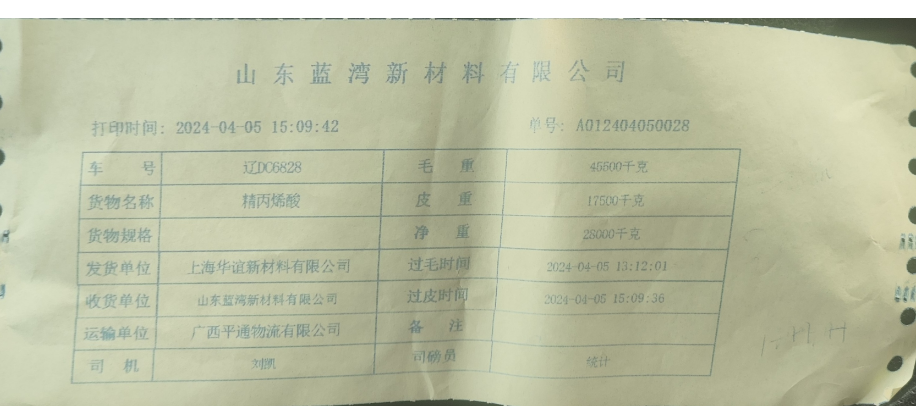 山东蓝湾新材料有限公司
打印时间: 2024-04-05 15:09:42 单号: A012404050028
车 号 辽DC6828 毛 重 45500千克
货物名称 精丙烯酸 皮 重 17500千克
货物规格 净 重 28000千克
发货单位 上海华谊新材料有限公司 过毛时间 2024-04-05 13:12:01
收货单位 山东蓝湾新材料有限公司 过皮时间 2024-04-05 15:09:36
运输单位 广西平通物流有限公司 备 注
司 机 刘凯 司磅员 统计